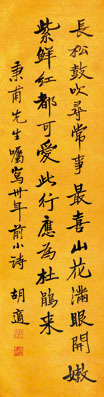 長松鼓吹尋常事最喜山花滿眼開嫩
紫鮮紅都可愛此行應為杜鵑來
秉甫先生囑寫卅年前小詩 胡適